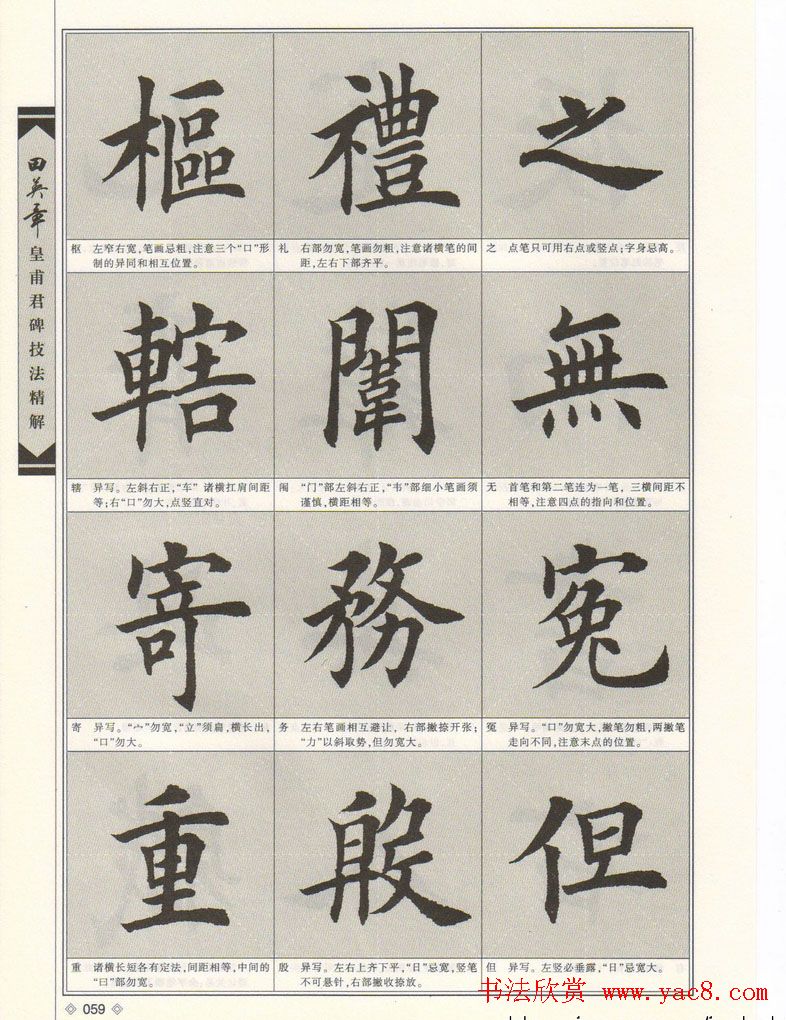 田英章
皇甫君碑技法精解
樞 禮 之
枢 左窄右宽,笔画忌粗,注意三个“口”形
制的异同和相互位置。
礼 右部勿宽,笔画勿粗,注意诸横笔的间
距,左右下部齐平。
之 点笔只可用右点或竖点;字身忌高。
轄 闈 無
辖 异写。左斜右正,“车”诸横扛肩间距
等;右“口”勿大,点竖直对。
闱 “门”部左斜右正,“韦”部细小笔画须
谨慎,横距相等。
无 首笔和第二笔连为一笔,三横间距不
相等,注意四点的指向和位置。
寄 務 寃
寄 异写。“宀”勿宽,“立”须扁,横长出,
“口”勿大。
务 左右笔画相互避让,右部撇捺开张;
“力”以斜取势,但勿宽大。
冤 异写。“口”勿宽大,撇笔勿粗,两撇笔
走向不同,注意末点的位置。
重 殷 但
重 诸横长短各有定法,间距相等,中间的
“曰”部勿宽。
殷 异写。左右上齐下平,“日”忌宽,竖笔
不可悬针,右部撇收捺放。
但 异写。左竖必垂露,“日”忌宽大。
059
书法欣赏 www.yac8.com